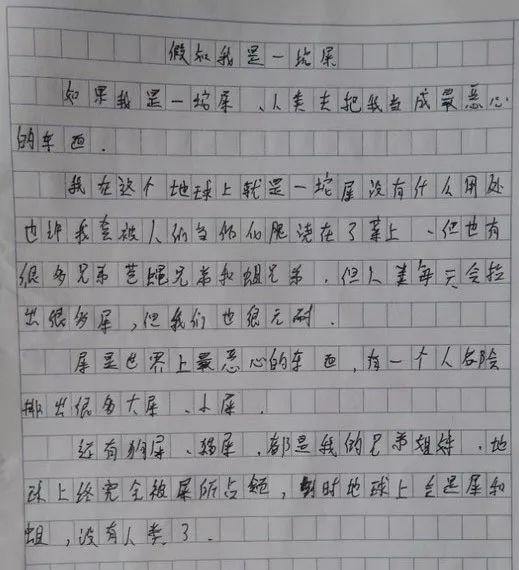 假如我是一坨屎
如果我是一坨屎、人类会把我当成最恶心
的东西.
我在这个地球上就是一坨屎没有什么用处
也许我会被人们当作化肥浇在了菜上、但也有
很多兄弟苍蝇兄弟和蛆兄弟.但人类每天会拉
出很多屎,但我们也很无耐.
屎是世界上最恶心的东西,有一个人名险
排出很多大屎、小屎.
还有狗屎、猫屎、都是我的兄弟姐妹、地
球上终究会被屎所占领,到时地球上会是屎和
蛆,没有人类了.